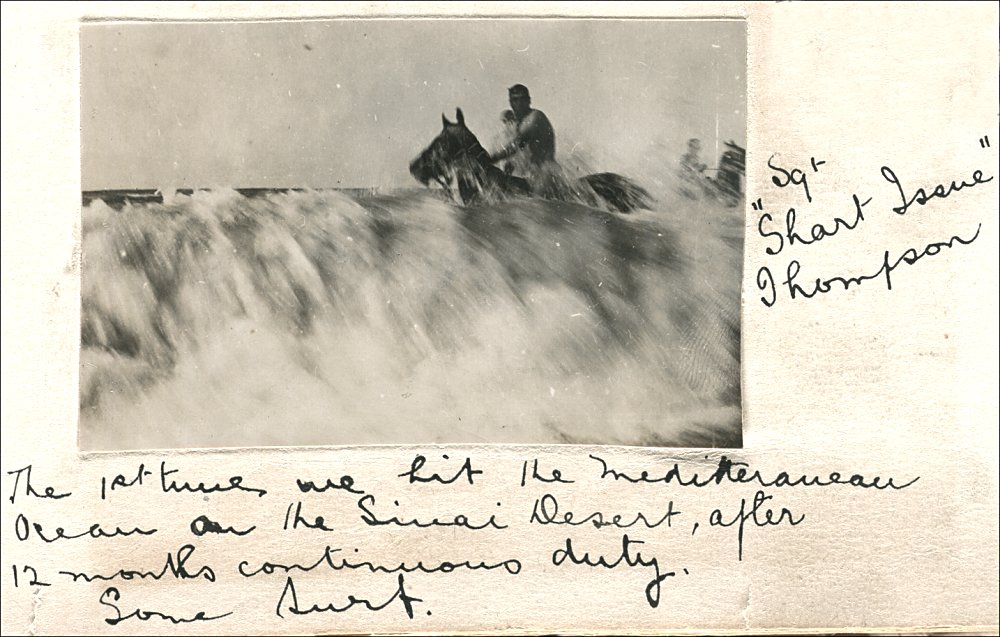 Sgt
"Short Issue"
Thompson
The 1st time we hit the Mediteraneau
Ocean on the Sinai Desert, after
12 months continuous duty.
Some surf.